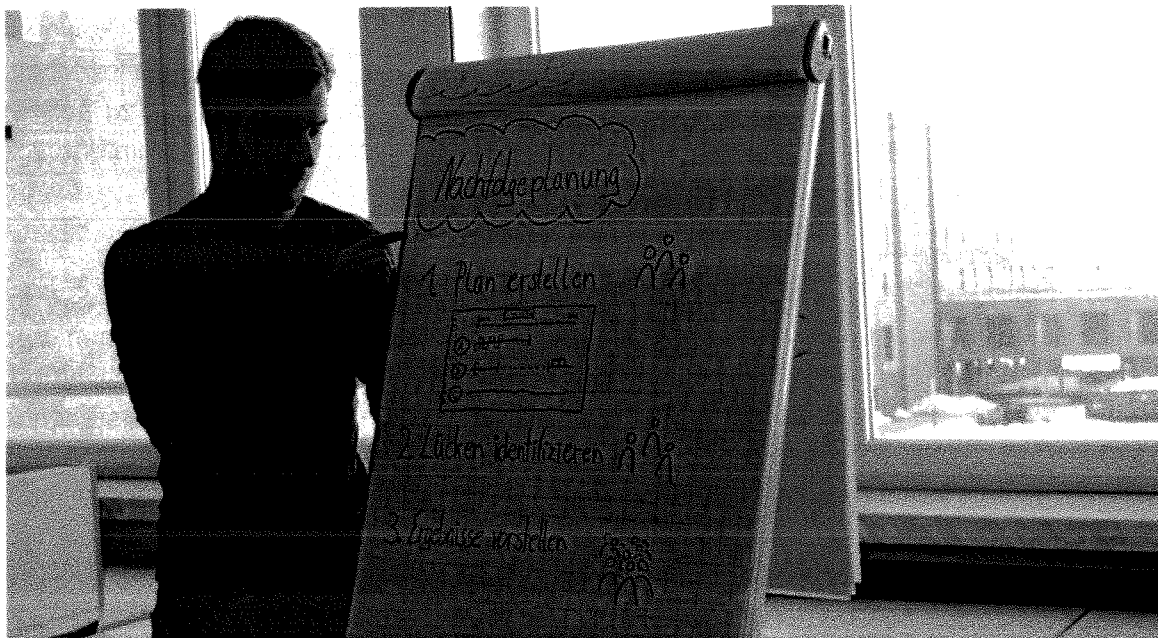 Nachfolgeplanung
1. Plan erstellen
2. Lücken identifizieren
3. Ergebnisse vorstellen